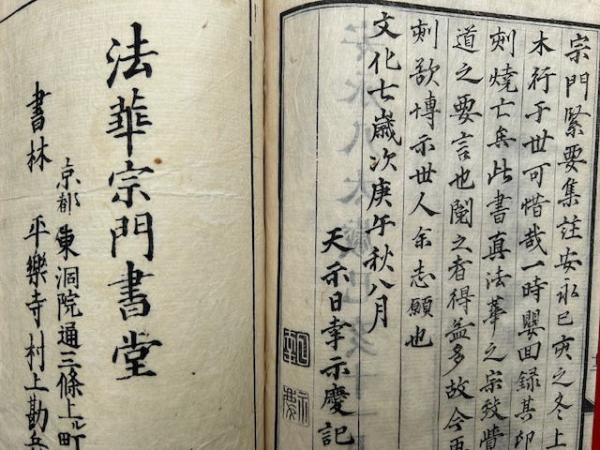 宗門緊要集註安永己亥之冬上
木行于世可惜哉一時嬰回録其印
刻燒亡矣此書真法華之宗
道之要言也閲之者得益多故今再
刻欲博示世人余志願也
文化七歳次庚午秋八月
天示日幸示慶記
法華宗門書堂
京都 東洞院通三條上ル町
書林 平樂寺村上勘兵